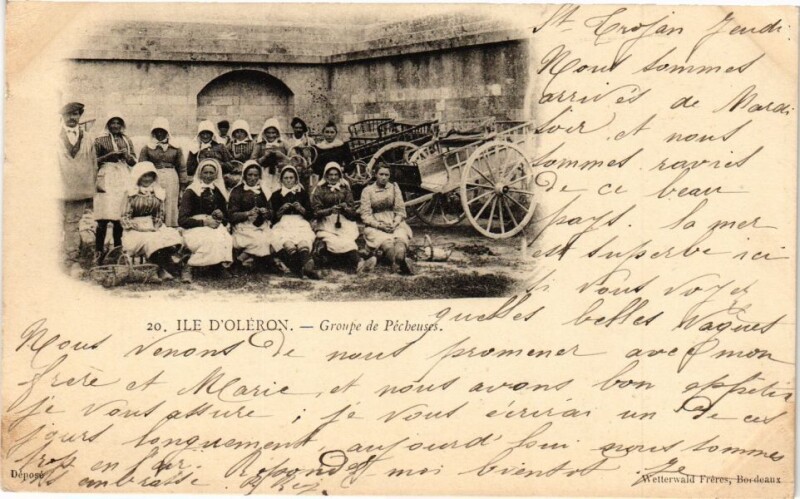 St Trojan Jeudi
Nous sommes
arrivés de Mardi
soir et nous
sommes ravies
de ce beau
pays. la mer
est superbe ici
si vous voyez
quelles belles vagues
20. ILE D'OLÉRON. — Groupe de Pêcheuses.
Nous venons de nous promener avec mon
frère et Marie et nous avons bon appétit
je vous assure ; je vous écrirai un de ces
jours longuement, aujourd'hui nous sommes
trop en l'air. Réponds moi bientôt. Je
embrasse
Déposé
Wetterwald Frères, Bordeaux